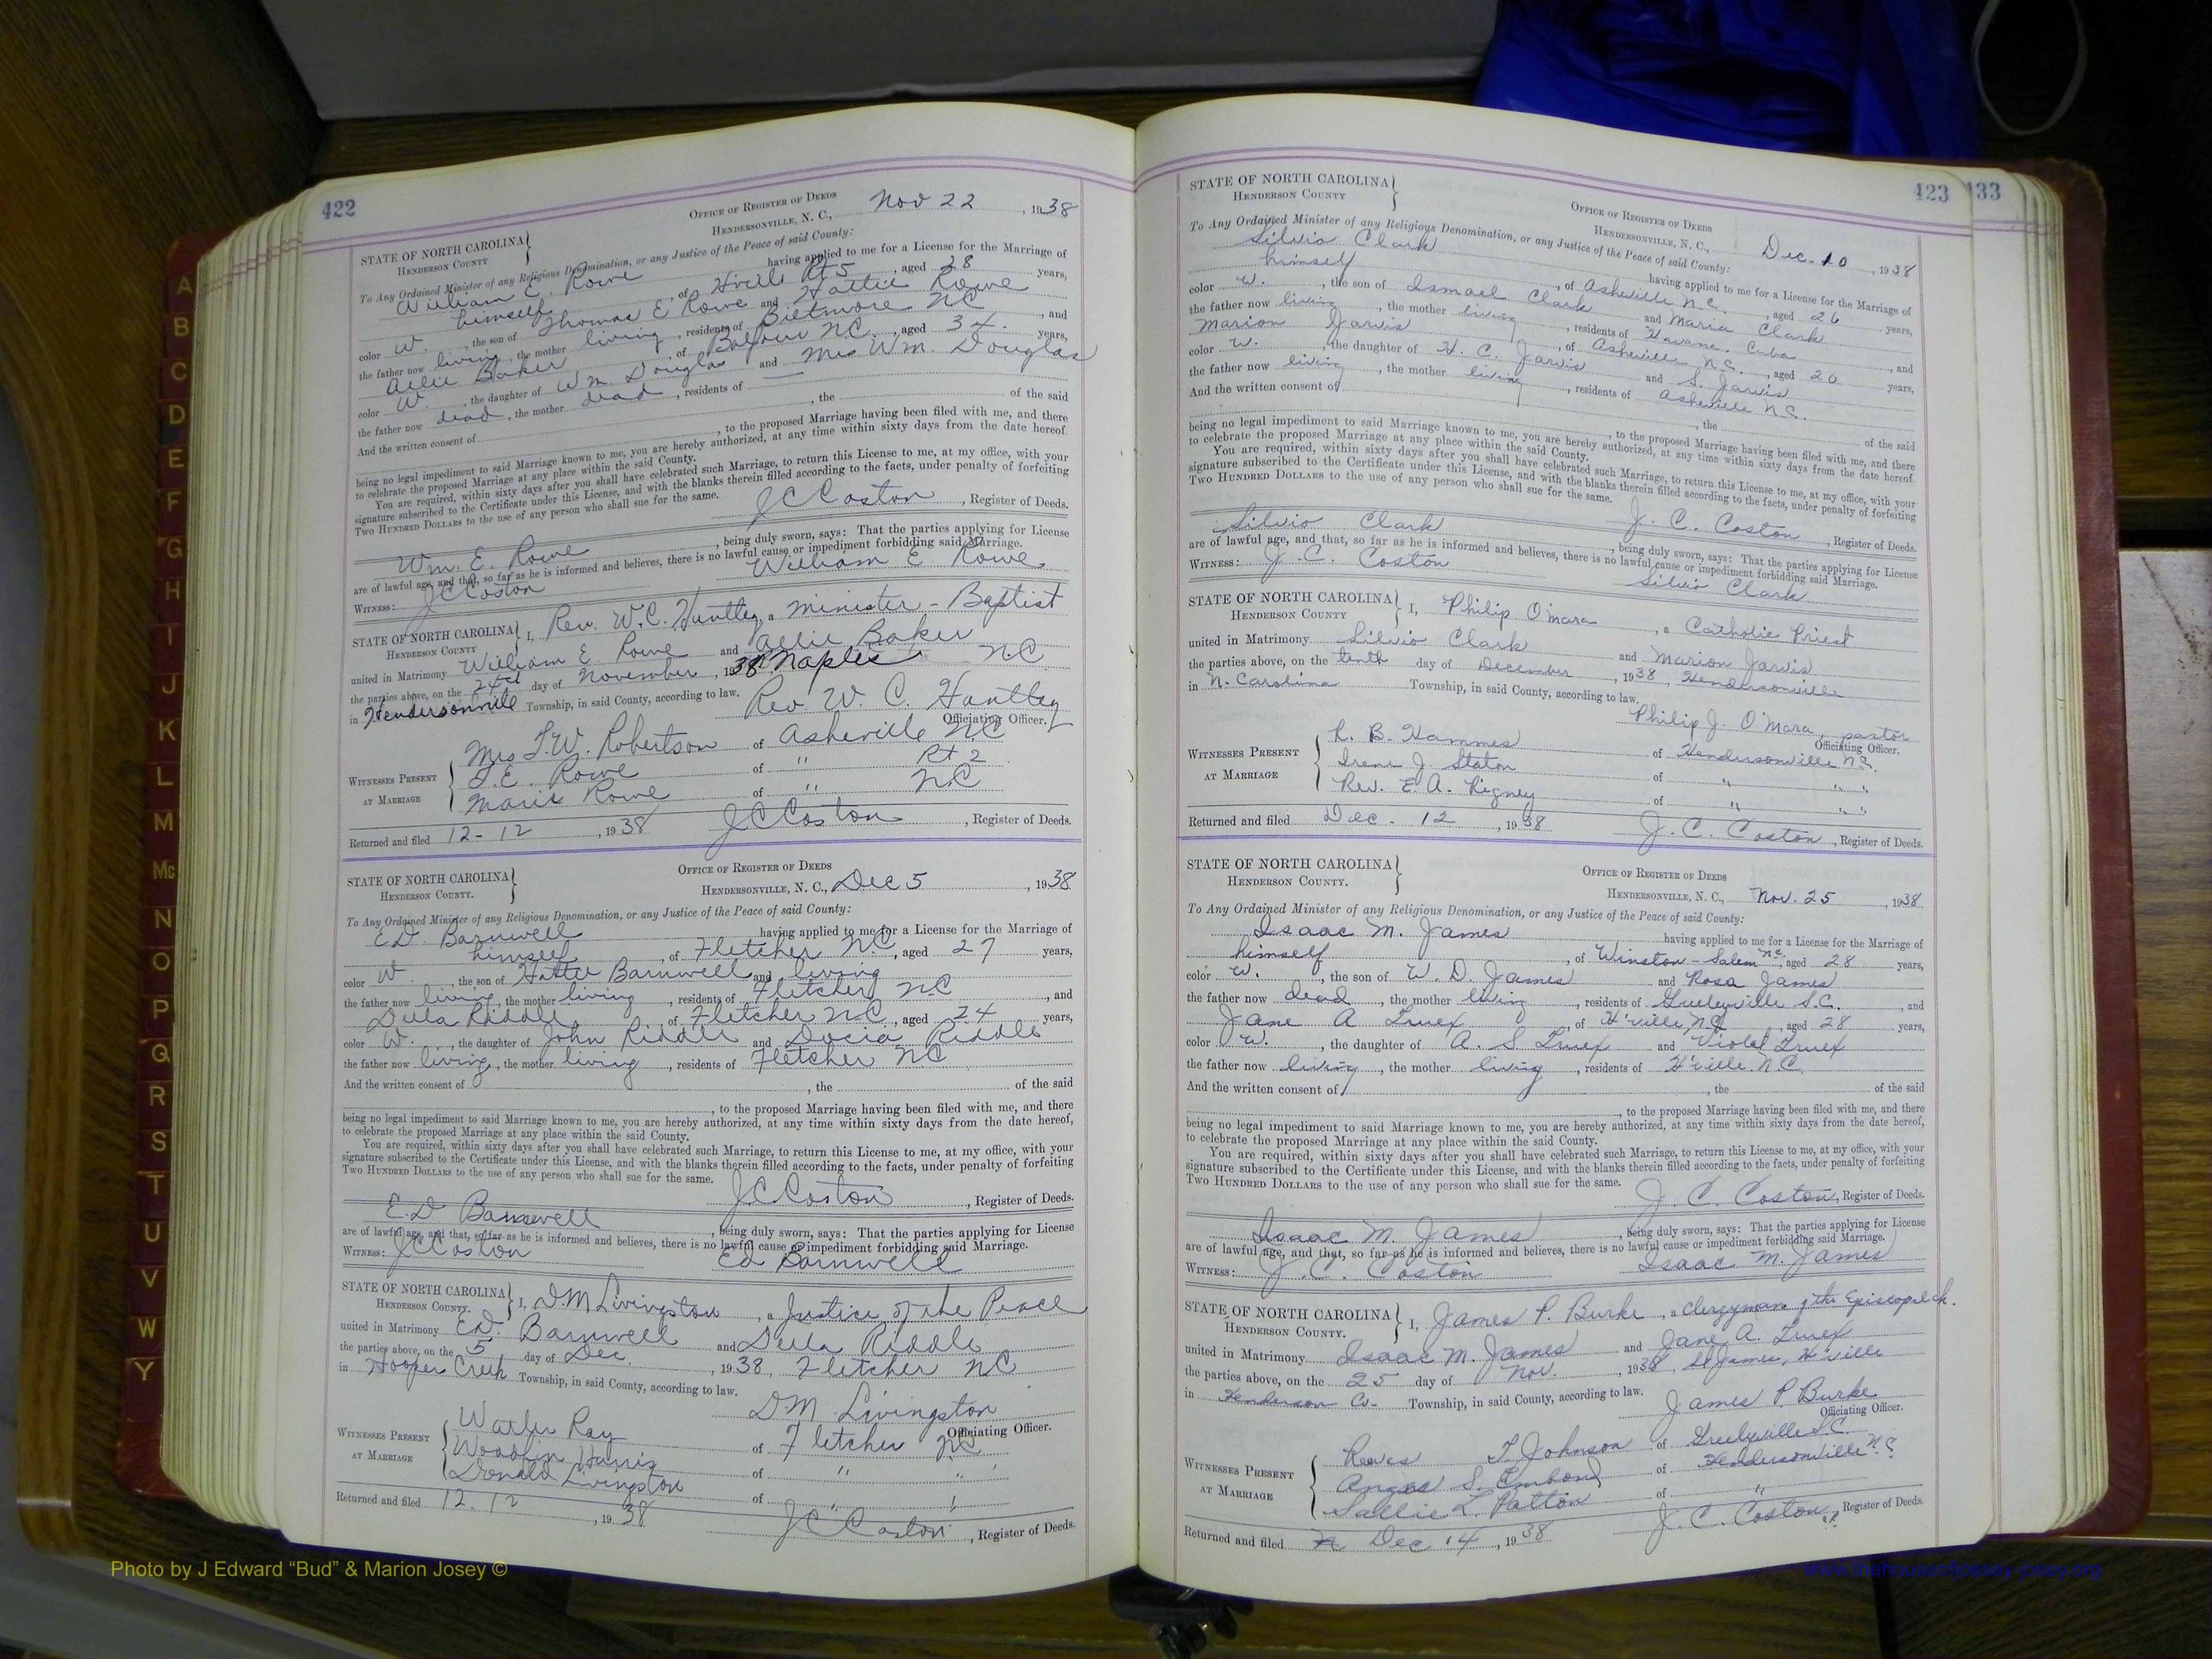 422
OFFICE OF REGISTER OF DEEDS
HENDERSONVILLE, N. C., Nov 22, 1938
STATE OF NORTH CAROLINA
HENDERSON COUNTY
To Any Ordained Minister of any Religious Denomination, or any Justice of the Peace of said County:
William E. Rowe having applied to me for a License for the Marriage of
himself, of Hville Rt 5, aged 28 years,
color W., the son of Thomas E Rowe and Hattie Rowe
the father now living, the mother living, residents of Biltmore NC, and
Allie Baker, of Balfour N.C., aged 34. years,
color W., the daughter of Wm. Douglas and Mrs Wm. Douglas
the father now dead, the mother dead, residents of —
And the written consent of , the of the said
, to the proposed Marriage having been filed with me, and there
being no legal impediment to said Marriage known to me, you are hereby authorized, at any time within sixty days from the date hereof
to celebrate the proposed Marriage at any place within the said County.
You are required, within sixty days after you shall have celebrated such Marriage, to return this License to me, at my office, with your
signature subscribed to the Certificate under this License, and with the blanks therein filled according to the facts, under penalty of forfeiting
TWO HUNDRED DOLLARS to the use of any person who shall sue for the same.
J C Coston, Register of Deeds.
Wm. E. Rowe, being duly sworn, says: That the parties applying for License
are of lawful age, and that, so far as he is informed and believes, there is no lawful cause or impediment forbidding said Marriage.
WITNESS: J C Coston William E Rowe.
STATE OF NORTH CAROLINA
HENDERSON COUNTY
I, Rev. W.C. Huntley, a minister - Baptist
united in Matrimony William E. Rowe and Allie Baker
the parties above, on the 24th day of November, 1938 Naples N.C
in Hendersonville Township, in said County, according to law.
Rev W. C. Huntley
Officiating Officer.
WITNESSES PRESENT
AT MARRIAGE
Mrs T.W. Robertson of Asheville NC
T.E. Rowe of " Rt 2
Marie Rowe of " NC
Returned and filed 12-12, 1938 J C Coston, Register of Deeds.
STATE OF NORTH CAROLINA
HENDERSON COUNTY.
OFFICE OF REGISTER OF DEEDS
HENDERSONVILLE, N. C., Dec 5, 1938
To Any Ordained Minister of any Religious Denomination, or any Justice of the Peace of said County:
Ed. Barnwell having applied to me for a License for the Marriage of
himself, of Fletcher NC, aged 27 years,
color W, the son of Hattie Barnwell and living
the father now living, the mother living, residents of Fletcher NC, and
Della Riddle, of Fletcher NC, aged 24 years,
color W., the daughter of John Riddle and Docia Riddle
the father now living, the mother living, residents of Fletcher NC
And the written consent of , the of the said
, to the proposed Marriage having been filed with me, and there
being no legal impediment to said Marriage known to me, you are hereby authorized, at any time within sixty days from the date hereof,
to celebrate the proposed Marriage at any place within the said County.
You are required, within sixty days after you shall have celebrated such Marriage, to return this License to me, at my office, with your
signature subscribed to the Certificate under this License, and with the blanks therein filled according to the facts, under penalty of forfeiting
TWO HUNDRED DOLLARS to the use of any person who shall sue for the same.
J C Coston, Register of Deeds.
E.D. Barnwell, being duly sworn, says: That the parties applying for License
are of lawful age, and that, so far as he is informed and believes, there is no lawful cause or impediment forbidding said Marriage.
WITNESS: J C Coston Ed Barnwell
STATE OF NORTH CAROLINA
HENDERSON COUNTY.
I, D.M Livingston, a Justice of the Peace
united in Matrimony Ed. Barnwell and Della Riddle
the parties above, on the 5 day of Dec, 1938, Fletcher NC
in Hooper Creek Township, in said County, according to law.
D.M. Livingston
Officiating Officer.
WITNESSES PRESENT
AT MARRIAGE
Walter Ray of Fletcher NC
Woodfin Harris of " "
Donald Livingston of " "
Returned and filed 12-12, 1938 J C Coston, Register of Deeds.
423
133
STATE OF NORTH CAROLINA
HENDERSON COUNTY
OFFICE OF REGISTER OF DEEDS
HENDERSONVILLE, N. C., Dec. 10, 1938
To Any Ordained Minister of any Religious Denomination, or any Justice of the Peace of said County:
Silvio Clark having applied to me for a License for the Marriage of
himself, of Asheville N.C., aged 26 years,
color W., the son of Ismael Clark and Maria Clark
the father now living, the mother living, residents of Havana, Cuba, and
Marion Jarvis, of Asheville N.C., aged 20 years,
color W., the daughter of H. C. Jarvis and S. Jarvis
the father now living, the mother living, residents of Asheville N.C.
And the written consent of , the of the said
, to the proposed Marriage having been filed with me, and there
being no legal impediment to said Marriage known to me, you are hereby authorized, at any time within sixty days from the date hereof
to celebrate the proposed Marriage at any place within the said County.
You are required, within sixty days after you shall have celebrated such Marriage, to return this License to me, at my office, with your
signature subscribed to the Certificate under this License, and with the blanks therein filled according to the facts, under penalty of forfeiting
TWO HUNDRED DOLLARS to the use of any person who shall sue for the same.
J. C. Coston, Register of Deeds.
Silvio Clark, being duly sworn, says: That the parties applying for License
are of lawful age, and that, so far as he is informed and believes, there is no lawful cause or impediment forbidding said Marriage.
WITNESS: J. C. Coston Silvio Clark
STATE OF NORTH CAROLINA
HENDERSON COUNTY
I, Philip O'mara, a Catholic Priest
united in Matrimony Silvio Clark and Marion Jarvis
the parties above, on the tenth day of December, 1938, Hendersonville
in N. Carolina Township, in said County, according to law.
Philip J. O'Mara, pastor
Officiating Officer.
WITNESSES PRESENT
AT MARRIAGE
R. B. Hammes of Hendersonville N.C.
Irene J. Staton of " " "
Rev. E. A. Rigney of " " "
Returned and filed Dec. 12, 1938 J. C. Coston, Register of Deeds.
STATE OF NORTH CAROLINA
HENDERSON COUNTY.
OFFICE OF REGISTER OF DEEDS
HENDERSONVILLE, N. C., Nov. 25, 1938
To Any Ordained Minister of any Religious Denomination, or any Justice of the Peace of said County:
Isaac M. James having applied to me for a License for the Marriage of
himself, of Winston-Salem N.C., aged 28 years,
color W., the son of W. D. James and Rosa James
the father now dead, the mother living, residents of Greeleyville S.C., and
Jane A , of H'ville N.C., aged 28 years,
color W., the daughter of A. S and Violet
the father now living, the mother living, residents of H'ville N.C.
And the written consent of , the of the said
, to the proposed Marriage having been filed with me, and there
being no legal impediment to said Marriage known to me, you are hereby authorized, at any time within sixty days from the date hereof,
to celebrate the proposed Marriage at any place within the said County.
You are required, within sixty days after you shall have celebrated such Marriage, to return this License to me, at my office, with your
signature subscribed to the Certificate under this License, and with the blanks therein filled according to the facts, under penalty of forfeiting
TWO HUNDRED DOLLARS to the use of any person who shall sue for the same.
J. C. Coston, Register of Deeds.
Isaac M. James, being duly sworn, says: That the parties applying for License
are of lawful age, and that, so far as he is informed and believes, there is no lawful cause or impediment forbidding said Marriage.
WITNESS: J. C. Coston Isaac M. James
STATE OF NORTH CAROLINA
HENDERSON COUNTY.
I, James P. Burke, a Clergyman of the Episcopal ch.
united in Matrimony Isaac M. James and Jane A.
the parties above, on the 25 day of Nov., 1938, St James, H'ville
in Henderson Co. Township, in said County, according to law.
James P. Burke
Officiating Officer.
WITNESSES PRESENT
AT MARRIAGE
Reves T. Johnson of Greeleyville S.C.
S. of Hendersonville N.C.
Sallie L. Patton of "
Returned and filed Dec 14, 1938 J. C. Coston, Register of Deeds.
A
B
C
D
E
F
G
H
I
J
K
L
M
Mc
N
O
P
Q
R
S
T
U
V
W
Y
Photo by J Edward “Bud” & Marion Josey ©